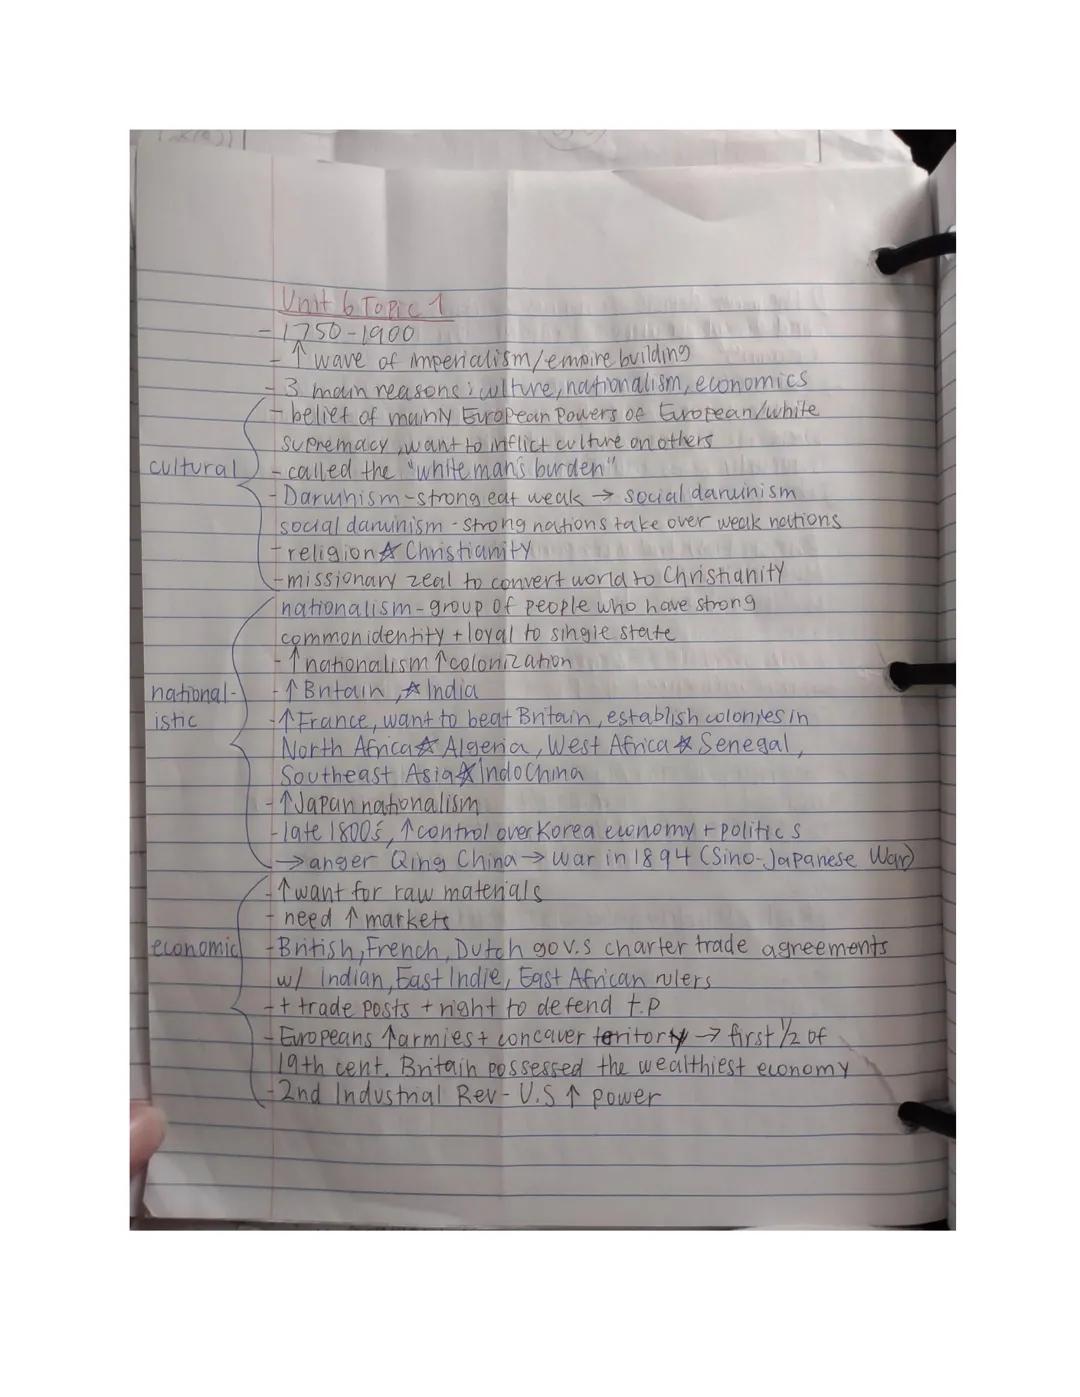 Unit 6 Topic 1
- 1750-1900
- ↑ wave of imperialism/empire building
- 3 main reasons: culture, nationalism, economics
- belief of mainly European Powers of European/white
supremacy, want to inflict culture on others
cultural - called the "white man's burden"
- Darwinism - strong eat weak → social darwinism
social darwinism - strong nations take over weak nations
- religion ☆ Christianity
- missionary zeal to convert world to Christianity
nationalism - group of people who have strong
common identity + loyal to single state
- ↑ nationalism ↑ colonization
national- - ↑ Britain, ☆ India
istic - ↑ France, want to beat Britain, establish colonies in
North Africa ☆ Algeria, West Africa ☆ Senegal,
Southeast Asia ☆ Indochina
- ↑ Japan nationalism
- late 1800s, ↑ control over Korea economy + politics
→ anger Qing China → war in 1894 (Sino-Japanese War)
- ↑ want for raw materials
- need ↑ markets
economic - British, French, Dutch gov.s charter trade agreements
w/ Indian, East Indie, East African rulers
- + trade posts + right to defend t.p
- Europeans ↑ armies + concquer territorty → first 1/2 of
19th cent. Britain possessed the wealthiest economy
- 2nd Industrial Rev - U.S ↑ power